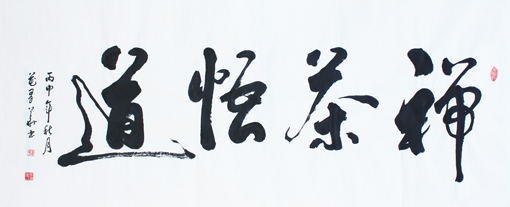 禅茶悟道
丙申年秋月